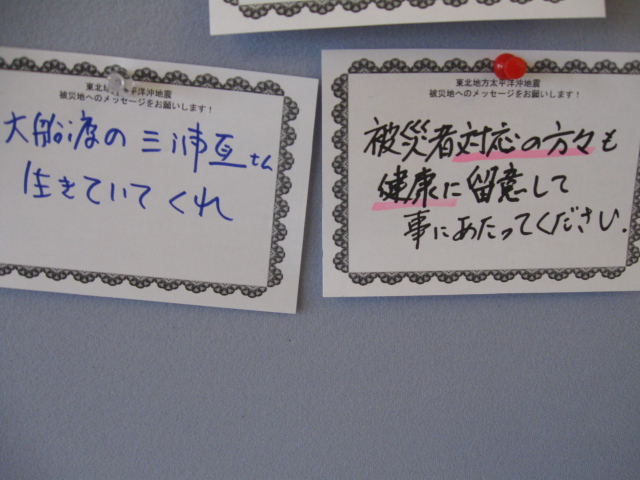 東北地方太平洋沖地震
被災地へのメッセージをお願いします!
大船渡の三浦亘さん
生きていてくれ
東北地方太平洋沖地震
被災地へのメッセージをお願いします!
被災者対応の方々も
健康に留意して
事にあたってください.